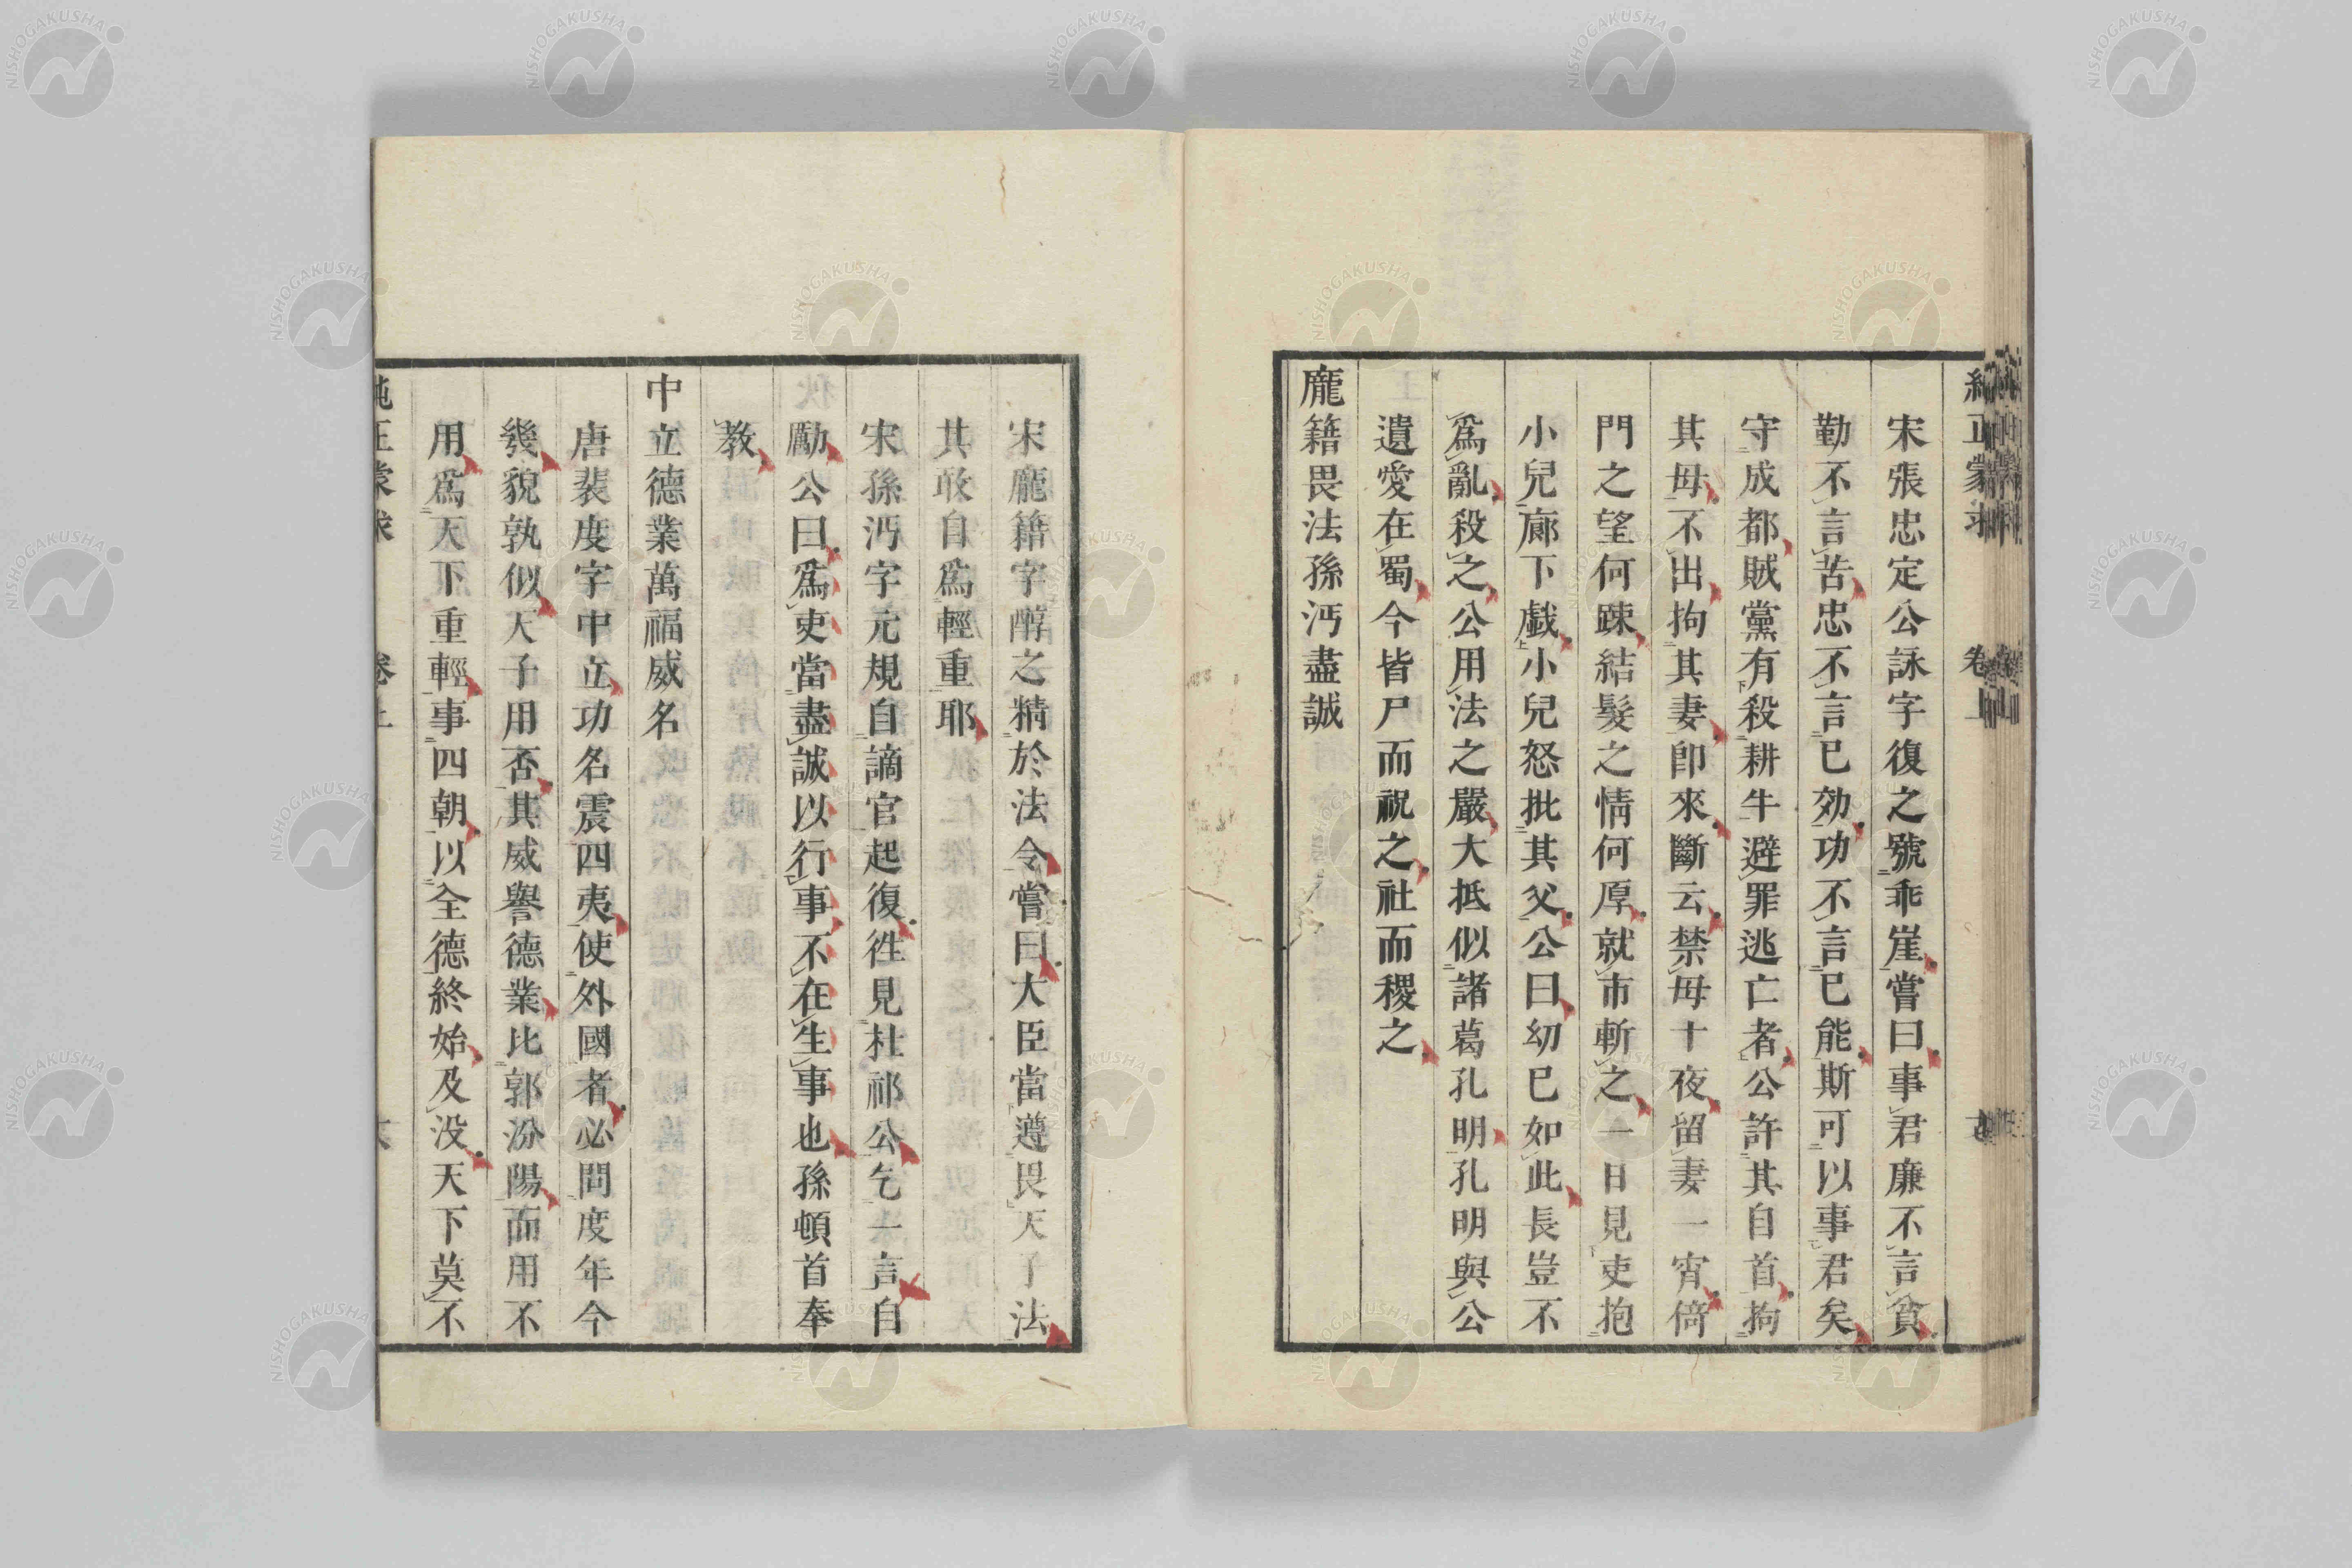 宋張忠定公詠字復之號乖崖嘗曰事君廉不言貧
勤不言苦忠不言已効功不言已能斯可以事君矣
守成都賊黨有殺耕牛避罪逃亡者公許其自首拘
其母不出拘其妻卽來斷云禁母十夜留妻一宵倚
門之望何踈結髮之情何厚就市斬之一日見吏抱
小兒廊下戱小兒怒批其父公曰幼已如此長豈不
爲亂殺之公用法之嚴大抵似諸葛孔明孔明與公
遺愛在蜀今皆尸而祝之社而稷之
龐籍畏法孫沔盡誠
宋龐籍字醇之精於法令嘗曰大臣當遵畏天子法
其敢自爲輕重耶
宋孫沔字元規自謫官起復徃見杜祁公乞一言自
勵公曰爲吏當盡誠以行事不在生事也孫頓首奉
教
中立德業萬福威名
唐裴度字中立功名震四夷使外國者必問度年今
幾貌孰似天子用否其威譽德業比郭汾陽而用不
用爲天下重輕事四朝以全德終始及没天下莫不
純正蒙求 卷上
NISHOGAKUSHA